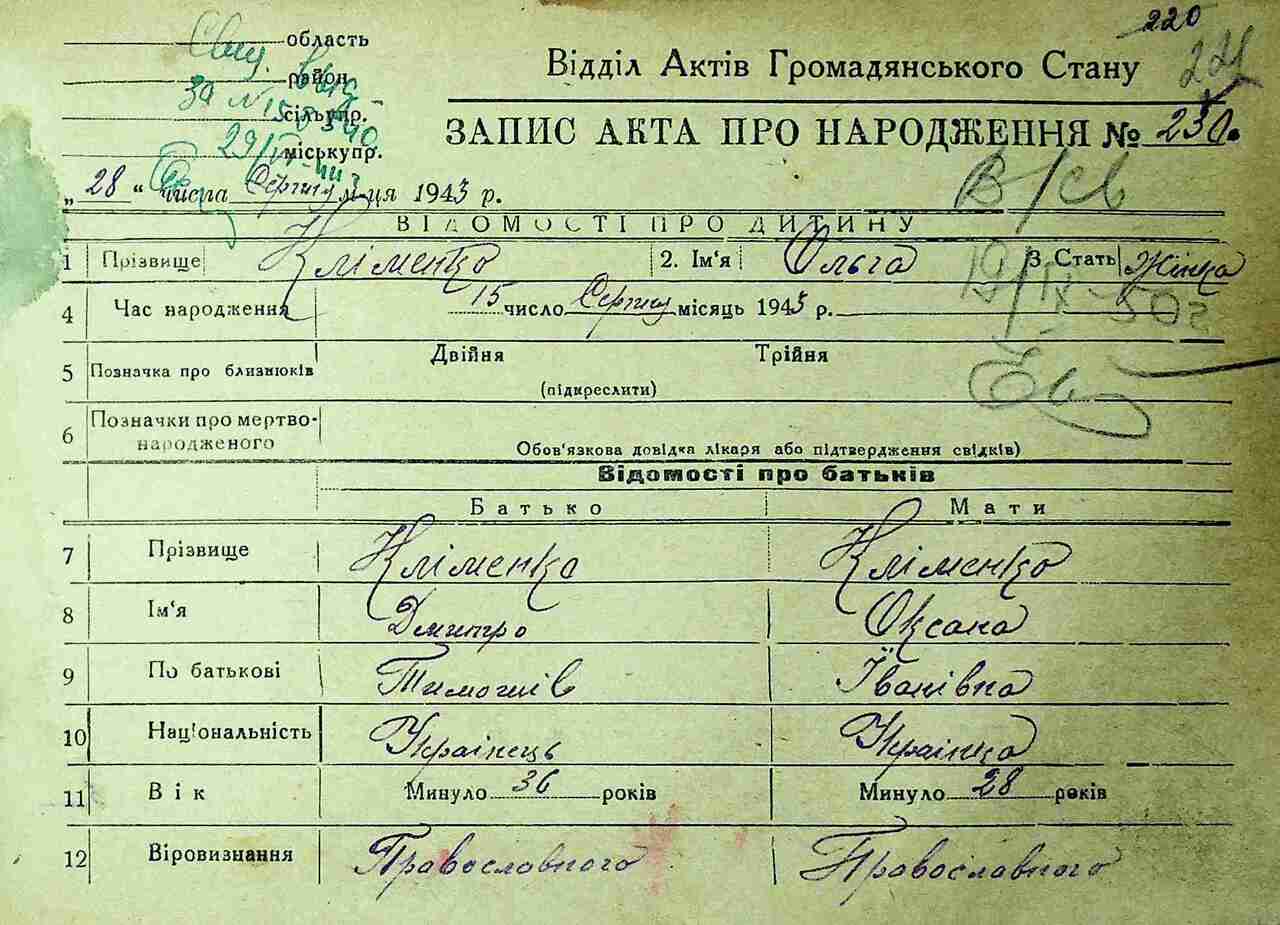 220
221
область
район
сільупр.
міськупр.
Відділ Актів Громадянського Стану
ЗАПИС АКТА ПРО НАРОДЖЕННЯ № 230
„28“ числа Серпня м-ця 1943 р.
В/св
ВІДОМОСТІ ПРО ДИТИНУ
1 Прізвище Кліменко 2. Ім'я Ольга 3. Стать Жінка
4 Час народження 15 число Серпня місяць 1943 р.
19/IX-50г
5 Позначка про близнюків Двійня Трійня
(підкреслити)
6 Позначки про мертво-
народженого
Обов'язкова довідка лікаря або підтвердження свідків)
Відомості про батьків
Батько Мати
7 Прізвище Кліменко Кліменко
8 Ім'я Дмитро Оксана
9 По батькові Тимошів Іванівна
10 Національність Украінець Украінка
11 Вік Минуло 36 років Минуло 28 років
12 Віровизнання Православного Православного